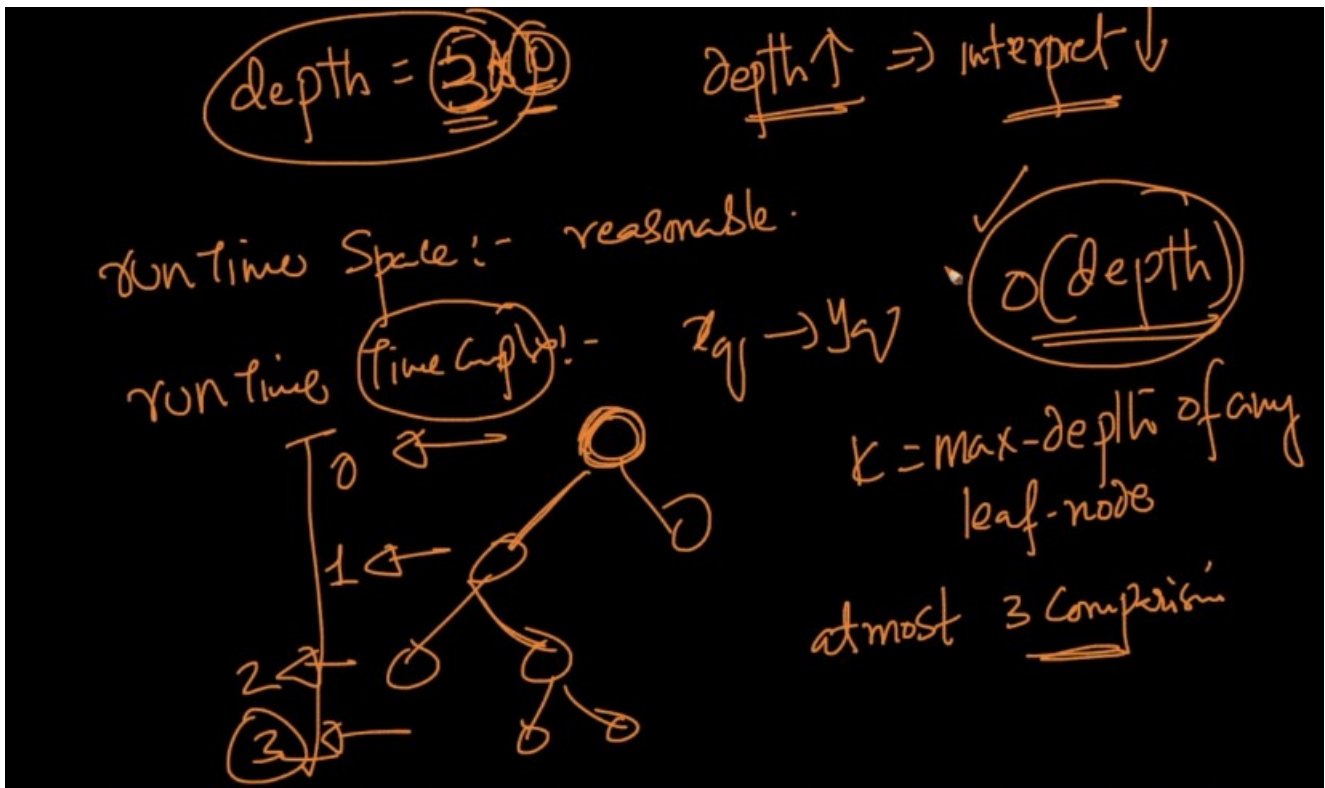 depth = 5 10
depth ↑ => interpret ↓
run Time Space:- reasonable.
run Time Time Complx:- xq → yq
O(depth)
K = max-depth of any
leaf-node
0
1
2
3
atmost 3 Comparisin